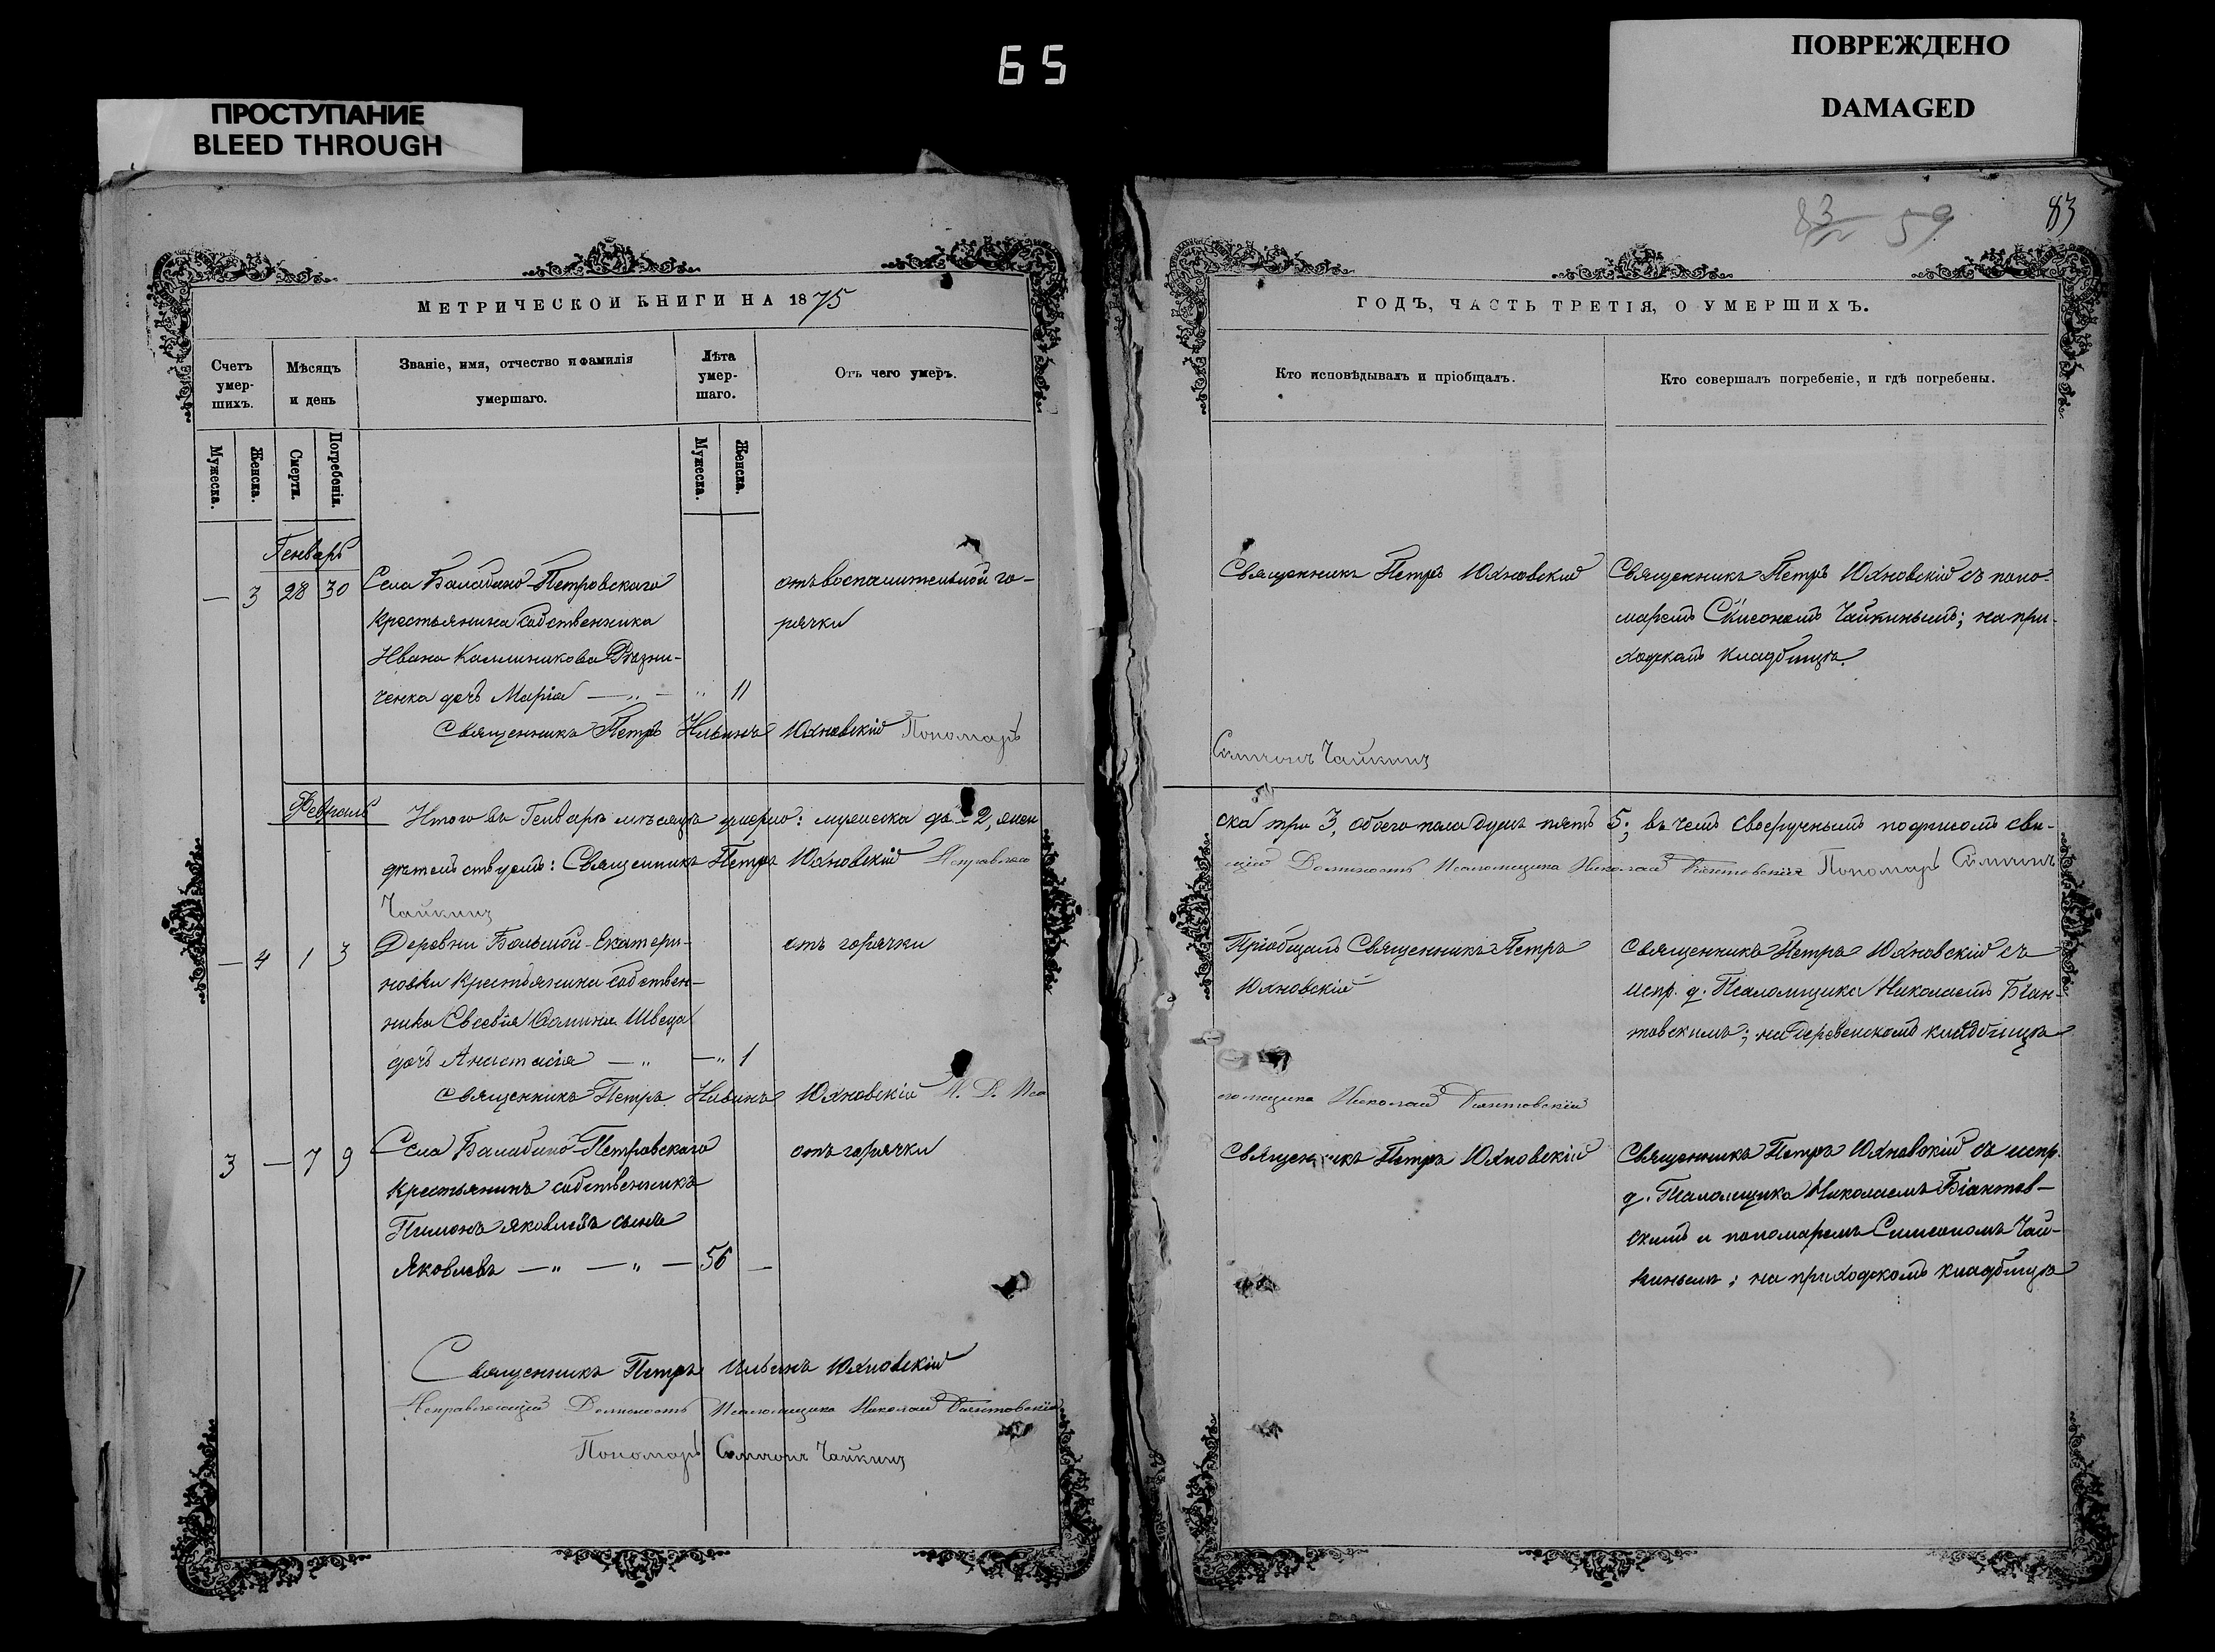 65
ПРОСТУПАНИЕ
BLEED THROUGH
ПОВРЕЖДЕНО
DAMAGED
83 59
83
МЕТРИЧЕСКОЙ КНИГИ НА 1875
Счетъ умер-шихъ.
Мѣсяцъ и день
Званіе, имя, отчество и фамилія умершаго.
Лѣта умер-шаго.
Отъ чего умеръ.
Мужеска.
Женска.
Смерти.
Погребенія.
Мужеска.
Женска.
Генварь
— 3 28 30
Села Балабино-Петровскаго
крестьянина собственника
Ивана Каллиникова
ченка дочь Марія — „ — „ 11
отъ воспалительной го-
рячки
Священникъ Петръ Ильинъ Юхновскій Пономарь
Февраль
Итого въ Генварѣ мѣсяцѣ умерло: мужеска два 2, жен
дѣтельствуемъ: Священникъ Петръ Юхновскій Исправляю
Чайкинъ
— 4 1 3
Деревни Большой-Екатери-
новки крестьянина собствен-
ника Евсевія Швеца
дочь Анастасія — „ — „ 1
отъ горячки
Священникъ Петръ Ильинъ Юхновскій И. Д. Пса
3 — 7 9
Села Балабино-Петровскаго
крестьянинъ собственникъ
Пимонъ Яковлевъ сынъ
Яковлевъ — „ — „ — 56 —
отъ горячки
Священникъ Петръ Ильинъ Юхновскій
Исправляющій Должность Псаломщика Николай Біянтовскій
Пономарь Симеонъ Чайкинъ
ГОДЪ, ЧАСТЬ ТРЕТІЯ, О УМЕРШИХЪ.
Кто исповѣдывалъ и пріобщалъ.
Кто совершалъ погребеніе, и гдѣ погребены.
Священникъ Петръ Юхновскій
Священникъ Петръ Юхновскій съ поно-
маремъ Симеономъ Чайкинымъ; на при-
ходскомъ кладбищѣ.
Симеонъ Чайкинъ
ска три 3, обоего пола душъ пять 5; въ чемъ своеручнымъ подписомъ сви-
щій Должность Псаломщика Николай Біянтовскій Пономарь Симеонъ
Пріобщалъ Священникъ Петръ
Юхновскій
Священникъ Петръ Юхновскій съ
испр. д. Псаломщика Николаемъ Біян-
товскимъ; на деревенскомъ кладбищѣ
ломщика Николай Біянтовскій
Священникъ Петръ Юхновскій
Священникъ Петръ Юхновскій съ испр.
д. Псаломщика Николаемъ Біантов-
скимъ и пономаремъ Симеономъ Чай-
кинымъ; на приходскомъ кладбищѣ